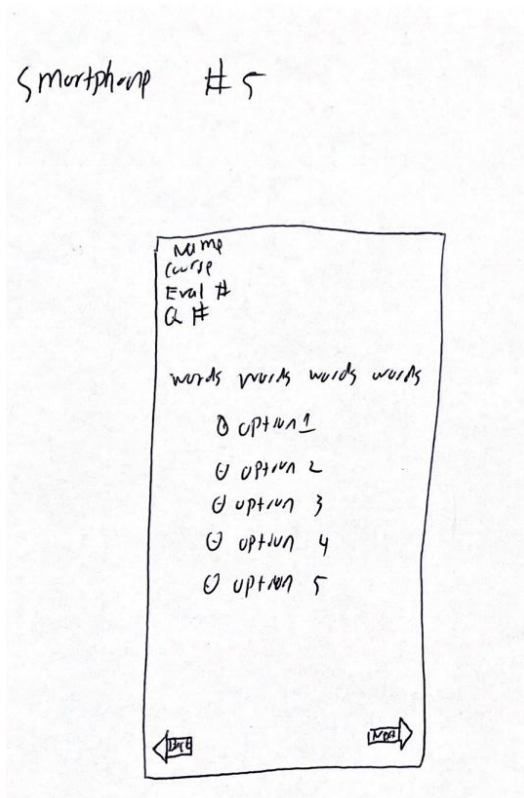 Smartphone #5
Name
Course
Eval #
Q #
words words words words
option 1
option 2
option 3
option 4
option 5
Next